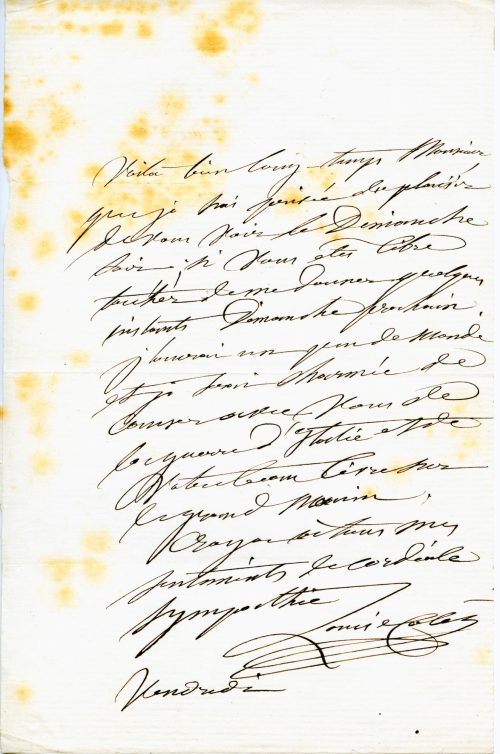 Voilà bien long temps Monsieur
que je suis privée du plaisir
de vous voir le Dimanche
soir ; si vous êtes libre
tachez de me donner quelques
instants Dimanche prochain.
j'aurai un peu de monde
et je serai charmée de
causer avec vous de
la guerre d'Italie et de
Votre beau livre sur
le grand Manin.
Croyez à tous mes
sentiments de cordiale
sympathie
Louise Colet
Vendredi